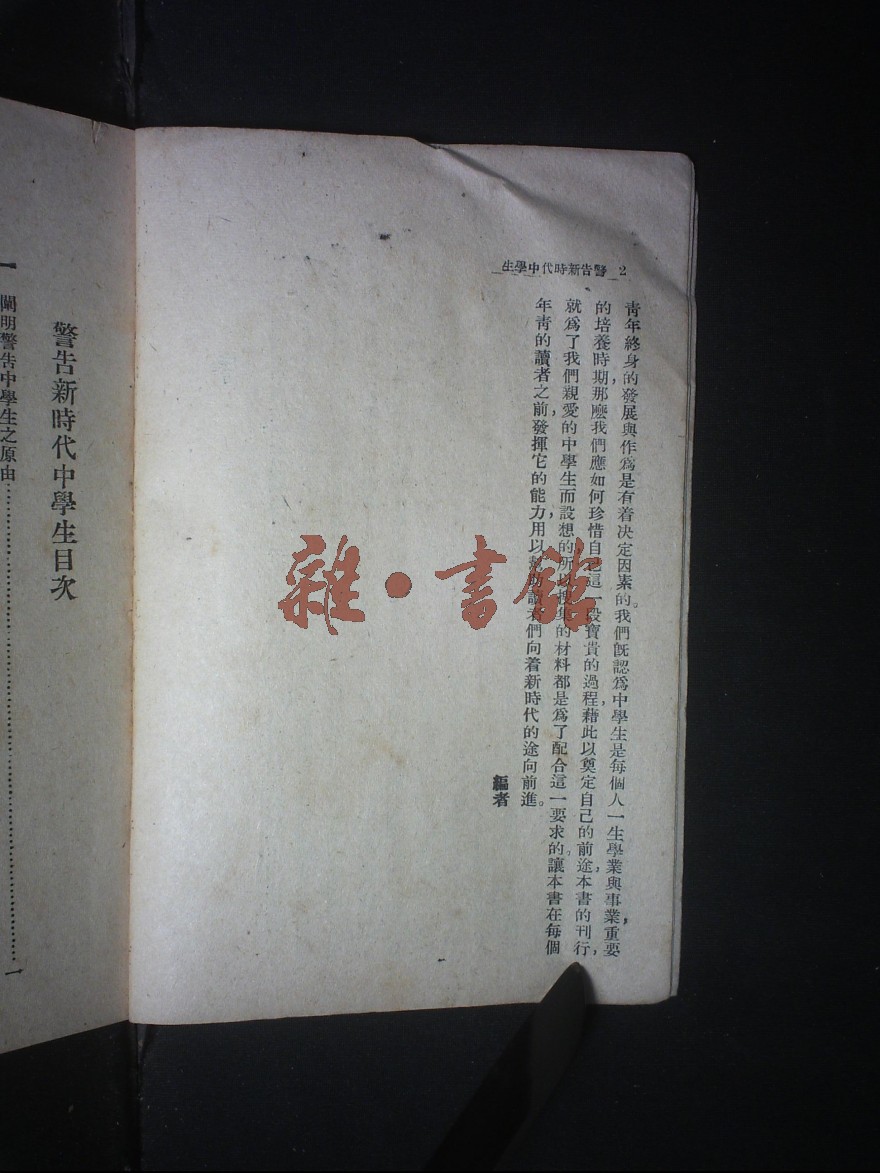 2 警告新時代中學生
青年終身的發展與作爲是有着决定因素的。我們既認爲中學生是每個人一生學業與事業重要
的培養時期,那麽我們應如何珍惜自己這一段寶貴的過程,藉此以奠定自己的前途,本書的刊行,
就爲了我們親愛的中學生而設想的,所以搜集的材料都是爲了配合這一要求的。讓本書在每個
年靑的讀者之前,發揮它的能力,用以幫助讀者們向着新時代的途向前進。
編者
警告新時代中學生目次
一 闡明警告中學生之原由…………一
雜·書館